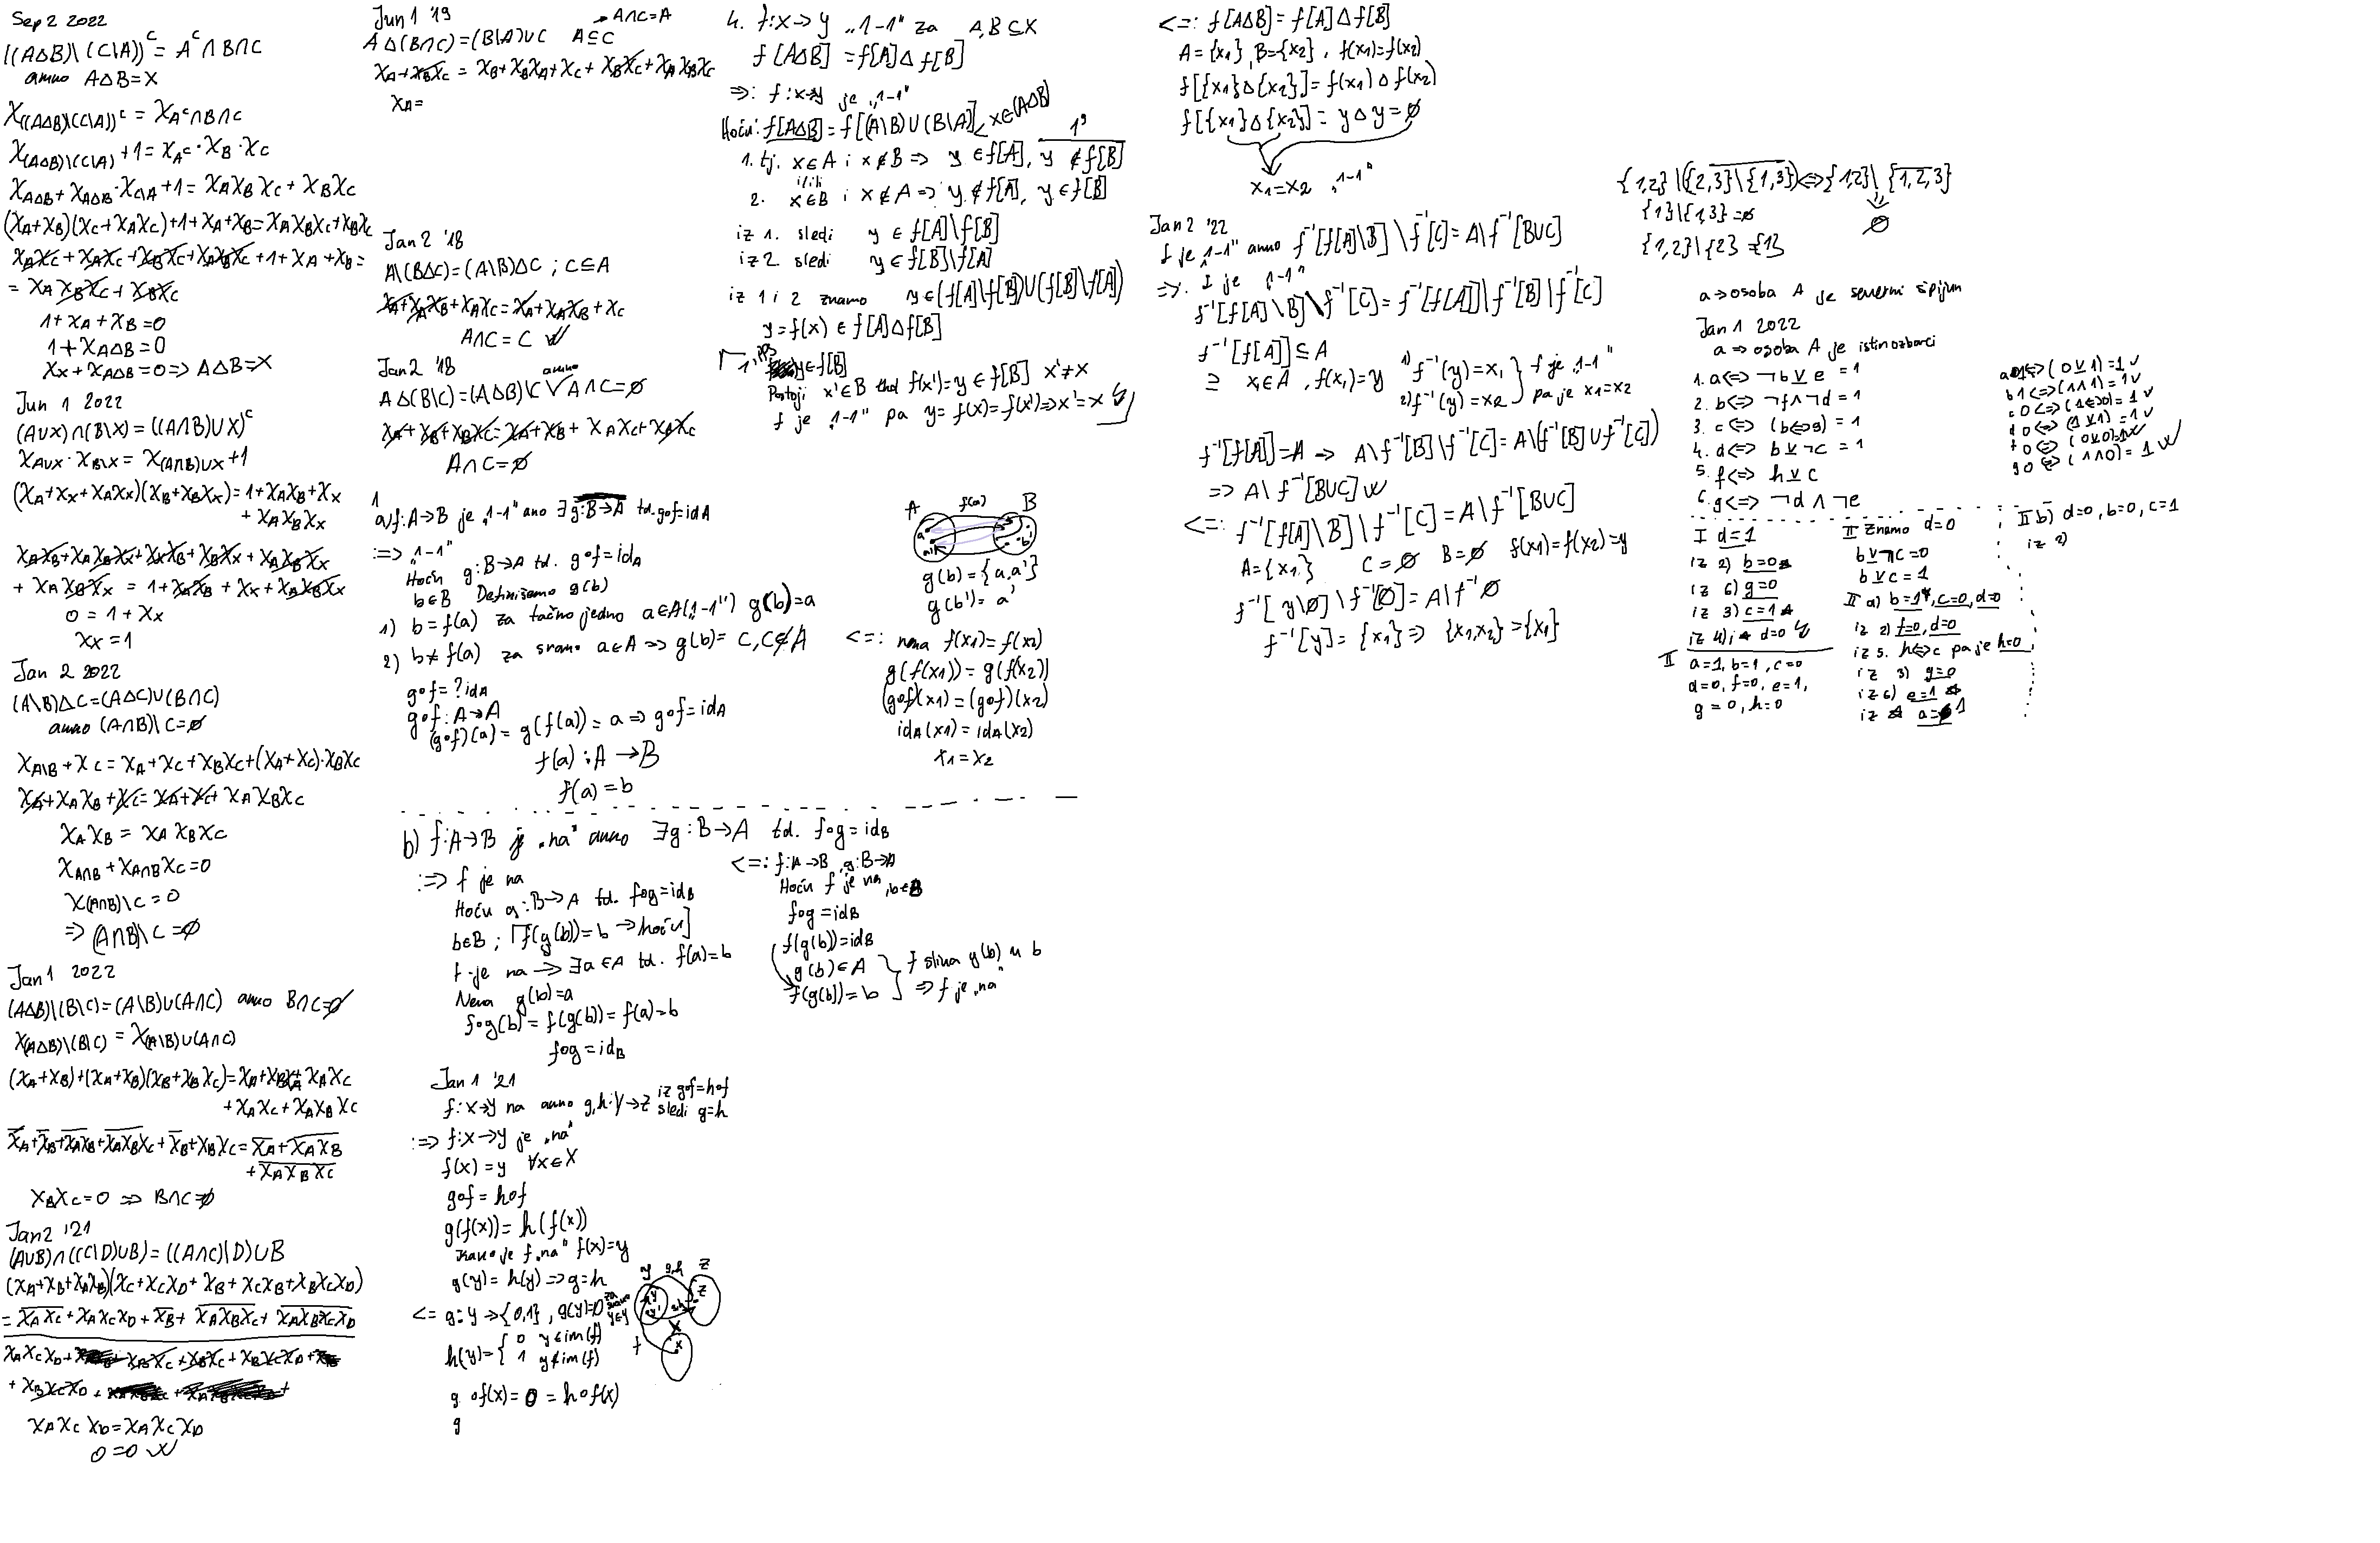 Sep 2 2022
((A∆B)\(C\A))ᶜ = Aᶜ∩B∩C
ammo A∆B=X
χ((A∆B)\(C\A))ᶜ = χAᶜ∩B∩C
χ(A∆B)\(C\A) +1= χAᶜ·χB·χC
χA∆B + χA∆B·χC\A +1= χAχBχC + χBχC
(χA+χB)(χC+χAχC)+1+χA+χB=χAχBχC+χBχC
χAχC+χAχC+χBχC+χAχBχC+1+χA+χB=
= χAχBχC+χBχC
1+χA+χB=0
1+χA∆B=0
χX+χA∆B=0=> A∆B=X
Jun 1 2022
(A∪X)∩(B\X) = ((A∩B)∪X)ᶜ
χA∪X·χB\X = χ(A∩B)∪X+1
(χA+χX+χAχX)(χB+χBχX)=1+χAχB+χX
+χAχBχX
χAχB+χAχBχX+χXχB+χBχX+χAχBχX
+ χAχBχX = 1+χAχB + χX+χAχBχX
0 = 1+χX
χX=1
Jan 2 2022
(A\B)∆C=(A∆C)∪(B∩C)
ammo (A∩B)\C=∅
χA\B+χC=χA+χC+χBχC+(χA+χC)·χBχC
χA+χAχB+χC=χA+χC+χAχBχC
χAχB = χAχBχC
χA∩B+χA∩BχC=0
χ(A∩B)\C=0
=> (A∩B)\C=∅
Jan 1 2022
(A∆B)\(B\C)=(A\B)∪(A∩C) ammo B∩C=∅
χ(A∆B)\(B\C) = χ(A\B)∪(A∩C)
(χA+χB)+(χA+χB)(χB+χBχC)=χA+χBχA+χAχC
+χAχC+χAχBχC
χA+χB+χAχB+χAχBχC+χB+χBχC=χA+χAχB
+χAχBχC
χBχC=0 => B∩C=∅
Jan 2 '21
(A∪B)∩((C\D)∪B)=((A∩C)\D)∪B
(χA+χB+χAχB)(χC+χCχD+χB+χCχB+χBχCχD)
= χAχC+χAχCχD+χB+χAχBχC+χAχBχCχD
χAχCχD=χAχCχD
0=0
Jun 1 '19
→A∩C=A
A∆(B∩C)=(B\A)∪C A⊆C
χA+χBχC = χB+χBχA+χC+χBχC+χAχBχC
χA=
Jan 2 '18
A\(B∆C)=(A\B)∆C ; C⊆A
χA+χAχB+χAχC=χA+χAχB+χC
A∩C=C
Jan 2 '18
ammo
A∆(B\C)=(A∆B)\C A∩C=∅
χA+χB+χBχC=χA+χB+χAχC+χBχC
A∩C=∅
1
a) f:A→B je „1-1" ano ∃g:B→A td. g∘f=idA
:=> „1-1"
Hoću g:B→A td. g∘f=idA
b∈B Definišemo g(b)
1) b=f(a) za tačno jedno a∈A(„1-1") g(b)=a
2) b≠f(a) za svako a∈A => g(b)= C, C∉A
g∘f=?idA
g∘f:A→A
(g∘f)(a)=g(f(a))=a=>g∘f=idA
f(a):A→B
f(a)=b
A f(a) B
a a' b b'
g(b)={a,a'}
g(b')=a'
<=: neka f(x1)=f(x2)
g(f(x1))=g(f(x2))
(g∘f)(x1)=(g∘f)(x2)
idA(x1)=idA(x2)
x1=x2
b) f:A→B je „na" ammo ∃g:B→A td. f∘g=idB
:=> f je na
Hoću g:B→A td. f∘g=idB
b∈B; [f(g(b))=b →hoću]
f-je na → ∃a∈A td. f(a)=b
Neka g(b)=a
f∘g(b)=f(g(b))=f(a)=b
f∘g=idB
<=: f:A→B, g:B→A
Hoću f je na, b∈B
f∘g=idB
f(g(b))=idB
g(b)∈A } f slika g(b) u b
f(g(b))=b => f je „na"
Jan 1 '21
f:X→Y na ammo g,h:Y→Z iz g∘f=h∘f
sledi g=h
:=> f:X→Y je „na"
f(x)=y ∀x∈X
g∘f=h∘f
g(f(x))=h(f(x))
Kako je f „na" f(x)=y
g(y)=h(y)=>g=h
<= g:Y→{0,1}, g(y)=0 za svako y∈Y
h(y)={ 0 y∈im(f)
1 y∉im(f)
Y g,h Z
y y' z
X
f x
g∘f(x)=0=h∘f(x)
g
4. f:X→Y „1-1" za A,B⊆X
f[A∆B]=f[A]∆f[B]
=>: f:X→Y je „1-1"
Hoću: f[A∆B]=f[(A\B)∪(B\A)] x∈(A∆B)
1. tj. x∈A i x∉B => y∈f[A], y∉f[B]
ili
2. x∈B i x∉A => y∉f[A], y∈f[B]
iz 1. sledi y∈f[A]\f[B]
iz 2. sledi y∈f[B]\f[A]
iz 1 i 2 znamo y∈(f[A]\f[B])∪(f[B]\f[A])
y=f(x)∈f[A]∆f[B]
1° pps
y∈f[B]
Postoji x'∈B tkd f(x')=y∈f[B] x'≠x
f je „1-1" pa y=f(x)=f(x')=>x'=x
<=: f[A∆B]=f[A]∆f[B]
A={x1}, B={x2}, f(x1)=f(x2)
f[{x1}∆{x2}]=f(x1)∆f(x2)
f[{x1}∆{x2}]=y∆y=∅
x1=x2 „1-1"
Jan 2 '22
f je „1-1" ammo f⁻¹[f[A]\B]\f⁻¹[C]=A\f⁻¹[B∪C]
=>. f je „1-1"
f⁻¹[f[A]\B]\f⁻¹[C]=f⁻¹[f[A]]\f⁻¹[B]\f⁻¹[C]
f⁻¹[f[A]]⊆A
⊇ x1∈A, f(x1)=y 1) f⁻¹(y)=x1 } f je „1-1"
2) f⁻¹(y)=x2 pa je x1=x2
f⁻¹[f[A]]=A → A\f⁻¹[B]\f⁻¹[C]=A\(f⁻¹[B]∪f⁻¹[C])
=> A\f⁻¹[B∪C]
<=: f⁻¹[f[A]\B]\f⁻¹[C]=A\f⁻¹[B∪C]
A={x1} C=∅ B=∅ f(x1)=f(x2)=y
f⁻¹[y\∅]\f⁻¹[∅]=A\f⁻¹∅
f⁻¹[y]={x1}=> {x1,x2}={x1}
{1,2}\({2,3}\{1,3})<=>{1,2}\{1,2,3}
{1}\{1,3}=∅ ∅
{1,2}\{2}={1}
a→osoba A je severni špijun
Jan 1 2022
a→osoba A je istinozborci
1. a<=> ¬b⊻e = 1
2. b<=> ¬f∧¬d = 1
3. c<=> (b<=>g) = 1
4. d<=> b⊻¬c = 1
5. f<=> h⊻c
6. g<=> ¬d∧¬e
a 1<=>(0⊻1)=1✓
b 1<=>(1∧1)=1✓
c 0<=>(1<=>0)=1✓
d 0<=>(1⊻1)=1✓
f 0<=>(0⊻0)=1✓
g 0<=>(1∧0)=1✓
I d=1
iz 2) b=0
iz 6) g=0
iz 3) c=1
iz 4) d=0
II a=1, b=1, c=0
d=0, f=0, e=1,
g=0, h=0
II znamo d=0
b⊻¬c=0
b⊻c=1
II a) b=1, c=0, d=0
iz 2) f=0, d=0
iz 5. h<=>c pa je h=0
iz 3) g=0
iz 6) e=1
iz a=1
II b) d=0, b=0, c=1
iz 2)